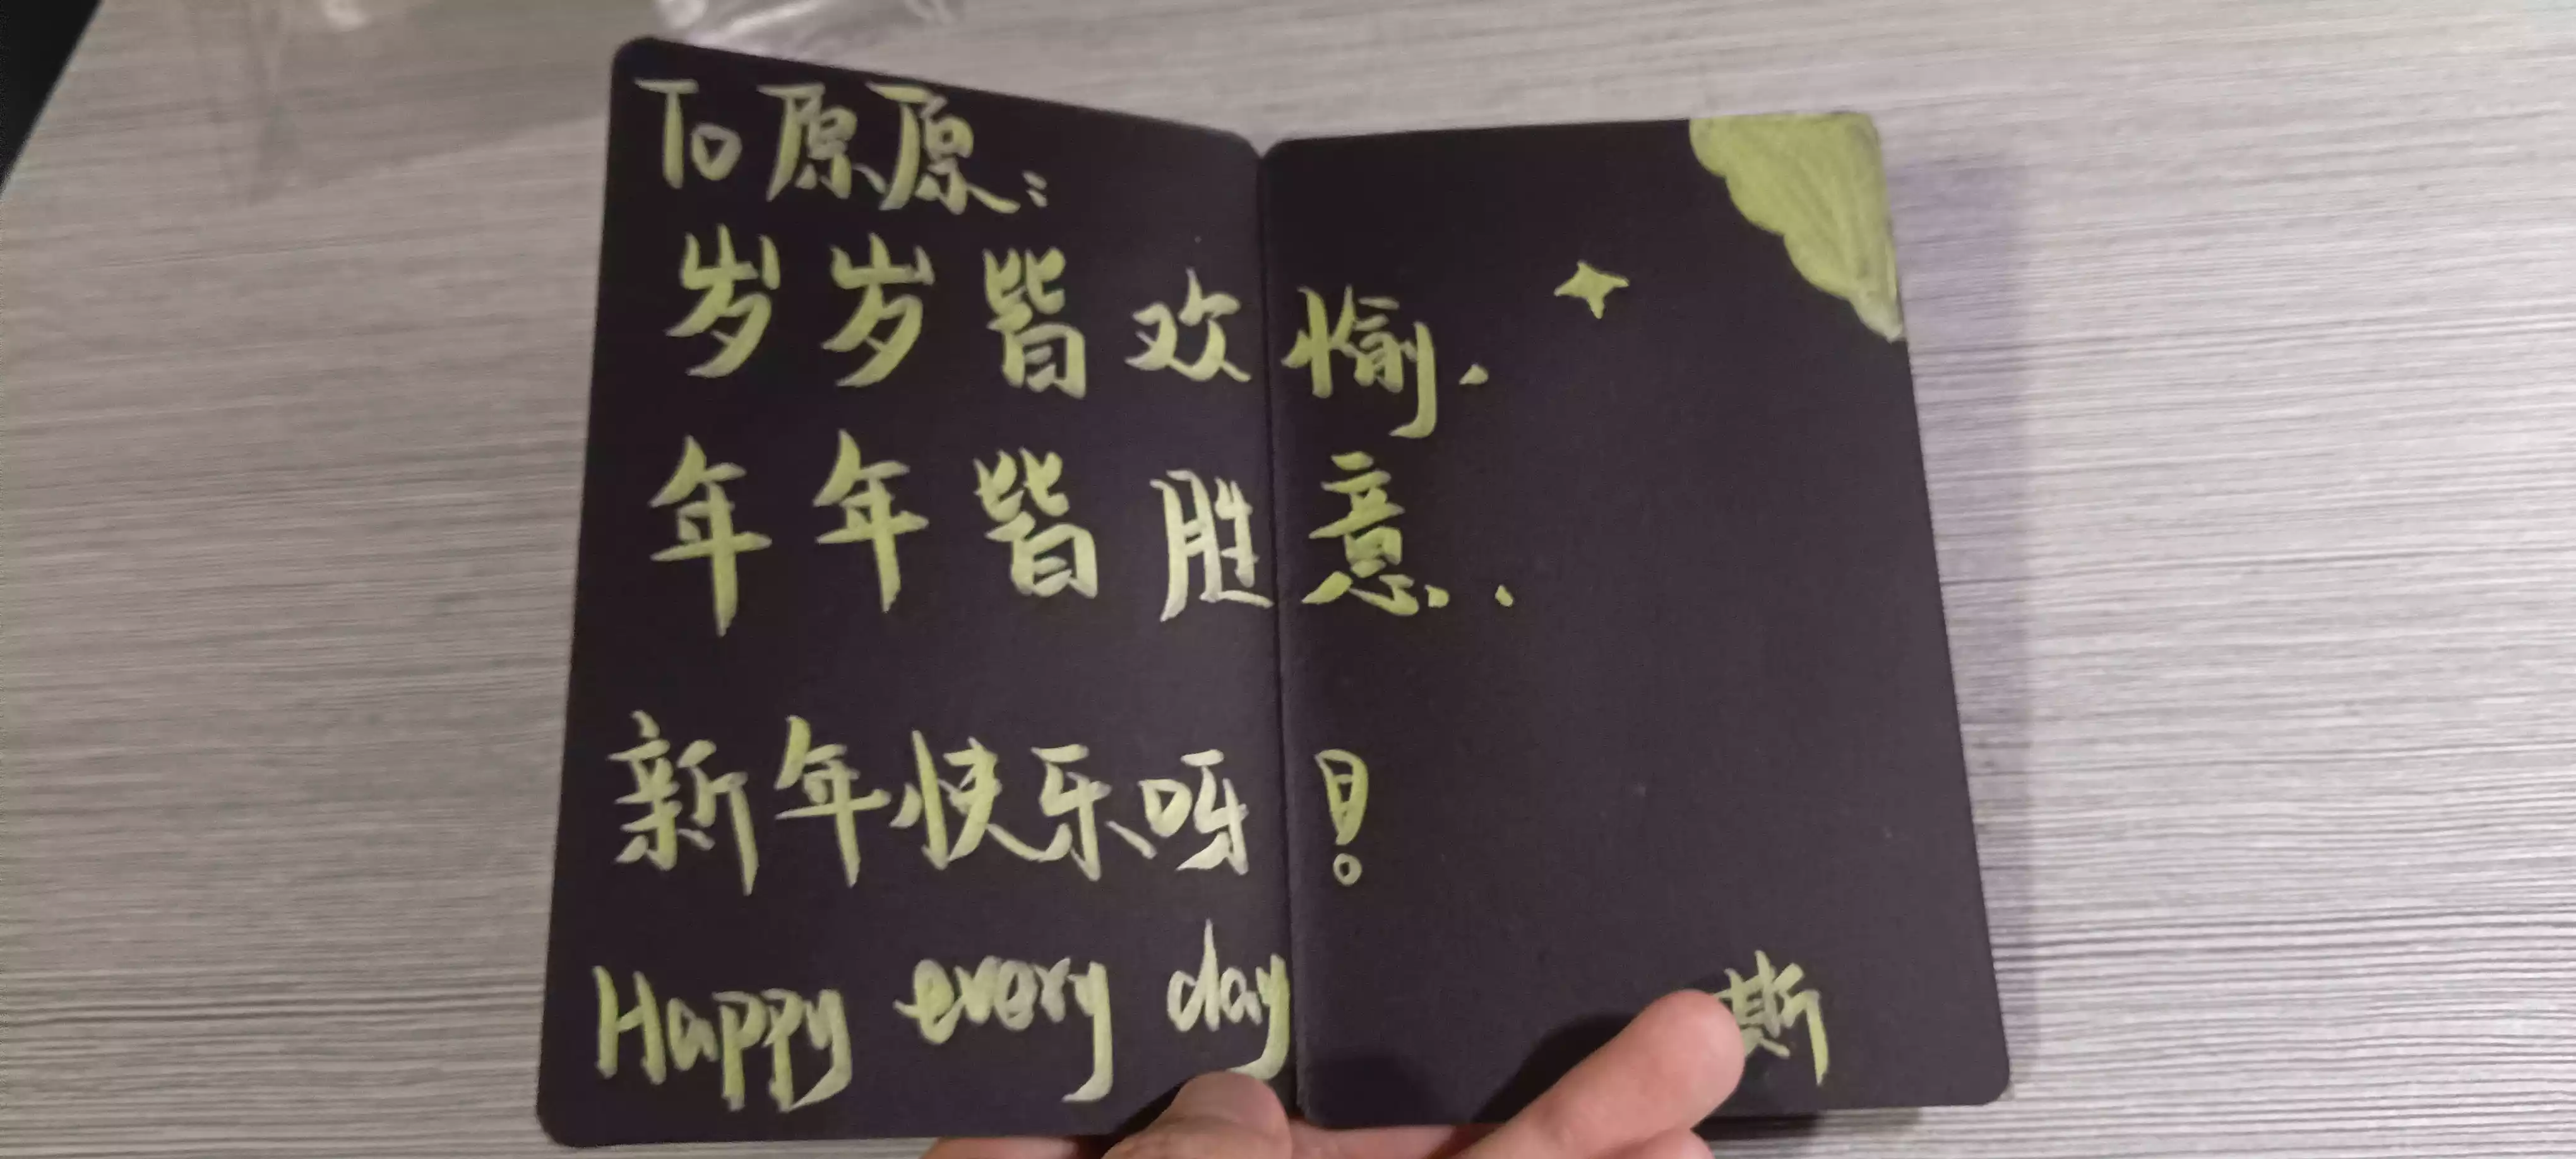 To 原原:
岁岁皆欢愉.
年年皆胜意..
新年快乐呀!
Happy every day
斯